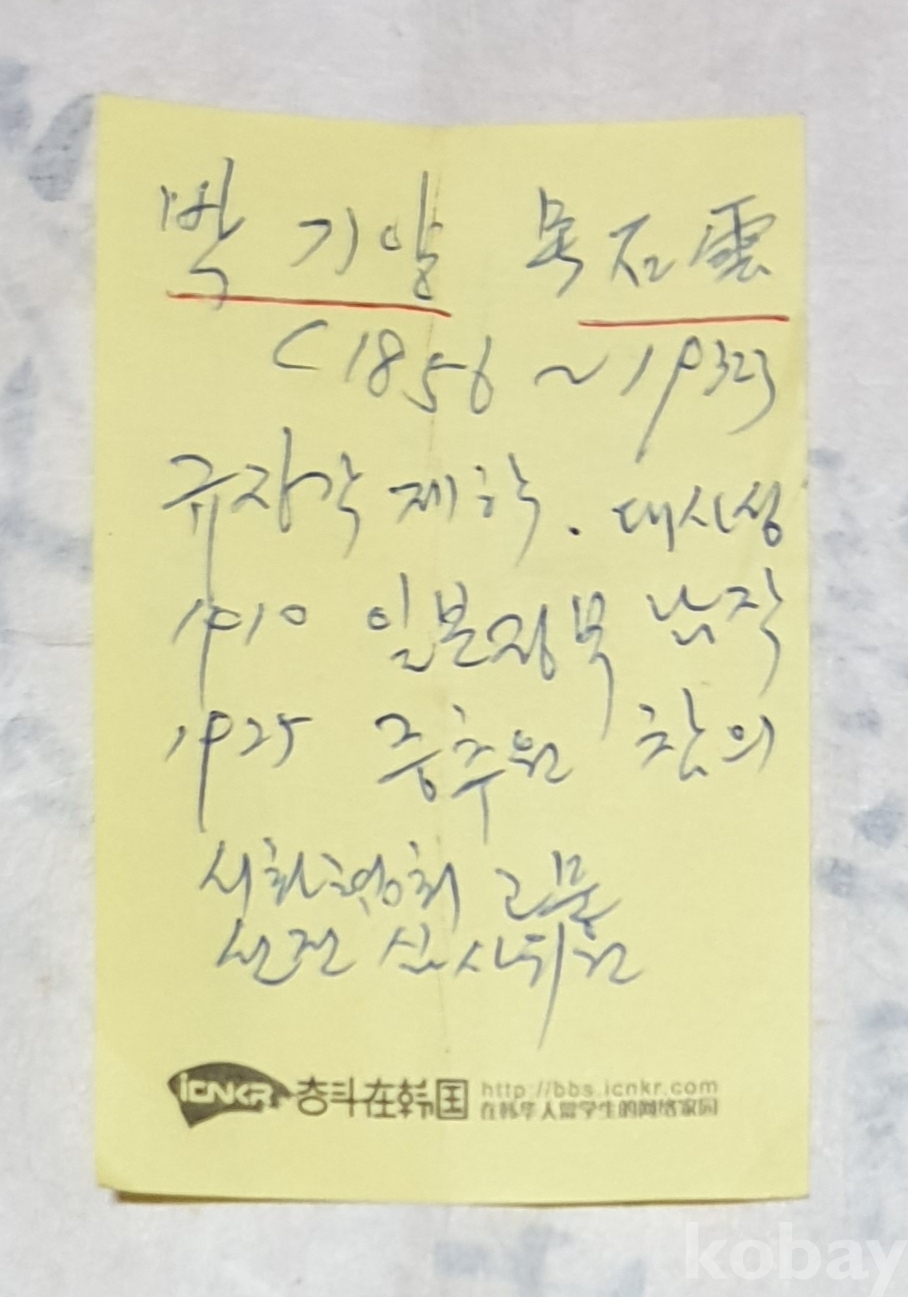 박기양 号石雲
(1856 ~ 1932)
규장각 제학. 대사성
1910 일본정부 남작
1925 중추원 참의
서화협회 고문
선전 심사위원
iCNKR 奋斗在韩国 http://bbs.icnkr.com
在韩华人留学生的网络家园
kobay